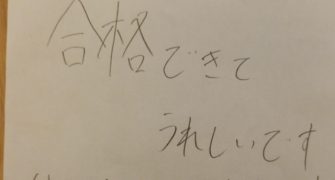 合格できて
うれしいです